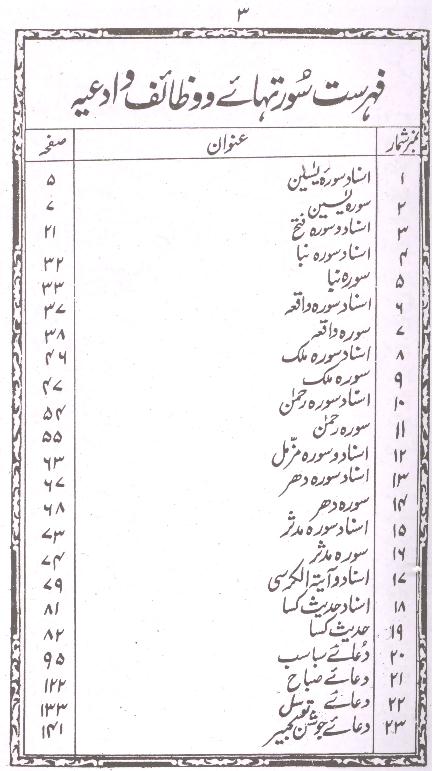 ۳
فہرست سُورتہائے و وظائف و ادعیہ
نمبر شمار عنوان صفحہ
۱ اسناد سورہ یٰسین ۵
۲ سورہ یٰسین ۷
۳ اسناد و سورہ فتح ۲۱
۴ اسناد سورہ نبا ۳۲
۵ سورہ نبا ۳۳
۶ اسناد سورہ واقعہ ۳۷
۷ سورہ واقعہ ۳۸
۸ اسناد سورہ ملک ۴۶
۹ سورہ ملک ۴۷
۱۰ اسناد سورہ رحمٰن ۵۴
۱۱ سورہ رحمٰن ۵۵
۱۲ اسناد و سورہ مزّمل ۶۳
۱۳ اسناد سورہ دھر ۶۷
۱۴ سورہ دھر ۶۸
۱۵ اسناد سورہ مدثر ۷۳
۱۶ سورہ مدثر ۷۴
۱۷ اسناد و آیۃ الکرسی ۷۹
۱۸ اسناد حدیث کسا ۸۱
۱۹ حدیث کسا ۸۲
۲۰ دُعائے سباسب ۹۵
۲۱ دعائے صباح ۱۲۲
۲۲ دعائے توسل ۱۳۳
۲۳ دعائے جوشن کبیر ۱۴۱